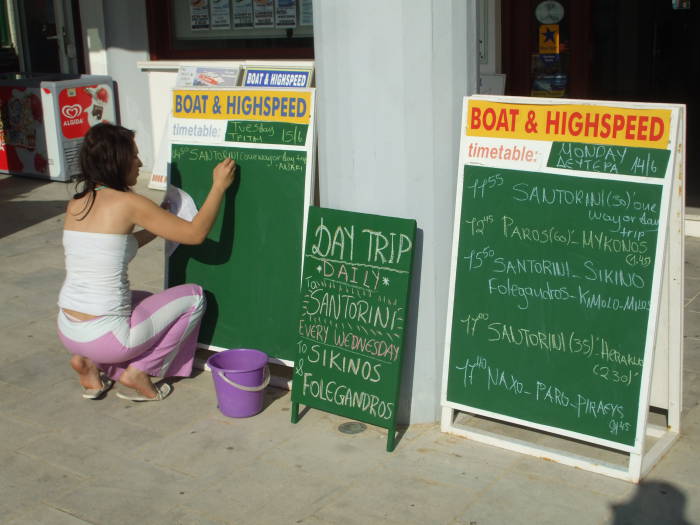 BOAT & HIGHSPEED
BOAT & HIGHSPEED
timetable:
Tuesday 15/6
ΤΡΙΤΗ
SANTORINI (one way or day trip
ALGIDA
DAY TRIP
*DAILY*
To
SANTORINI
EVERY WEDNESDAY
To SIKINOS
&
FOLEGANDROS
BOAT & HIGHSPEED
timetable:
MONDAY
ΔΕΥΤΕΡΑ 14/6
11⁵⁵ SANTORINI (50)' one
way or day
trip
12⁴⁵ PAROS (60)'- MYKONOS
15⁵⁰ SANTORINI - SIKINO
Folegandros - KiMOLO - MILOS
17⁰⁰ SANTORINI (35)'- HERAKLIO
(2³⁰)
17⁴⁰ NAXO - PARO - PIRAEYS